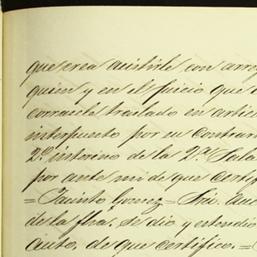 que crea asistirle con arre
quien y en el juicio que
corrasele traslado en artic
interpuesto por su contrari
2º. interino de la 2ª. Sala
por ante mi de que certif
=Jacinto Gomez= Srio.
de la fha. se dio y estendio
auto, de que certifico.=